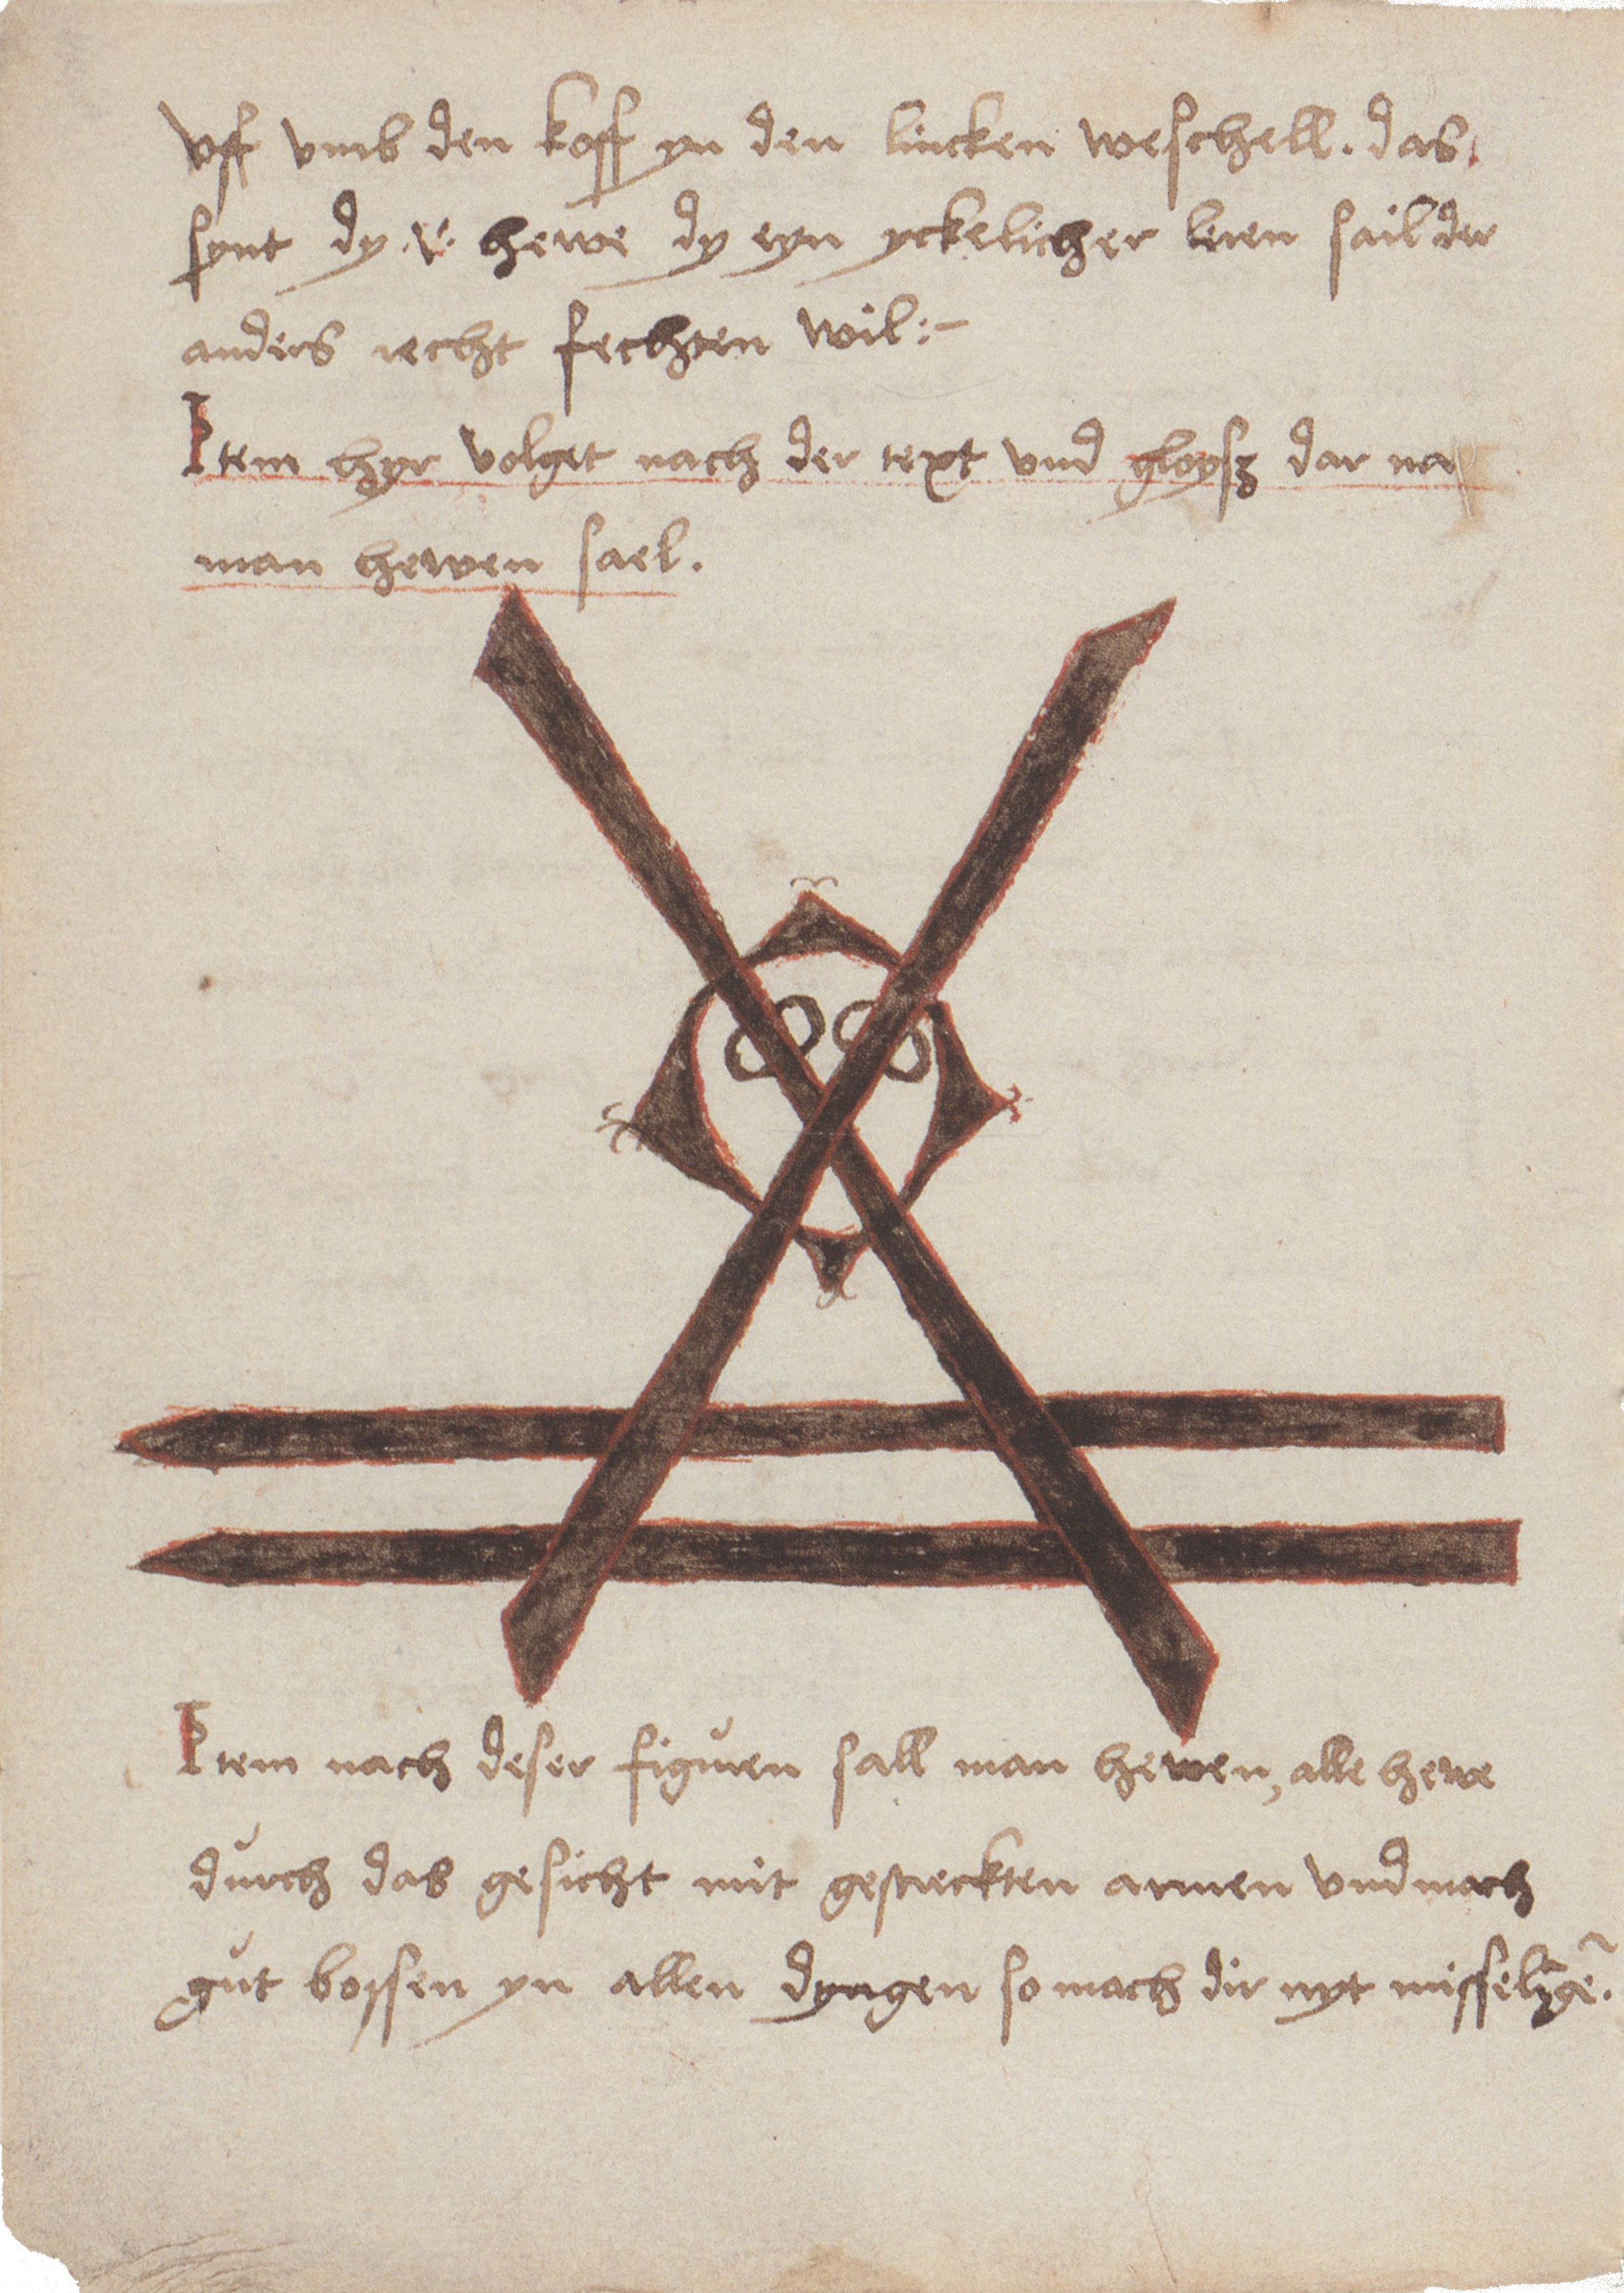 vff vmb den koff yn den lincken weschell. das
synt dy .v. hewe dy eyn yckelicher leren sail der
anders recht fechten wil:-
Item hyr volget nach der text vnd gloysz dar na
man hewen sael.
Item nach deser figuren sall man hewen, alle hewe
durch das gesicht mit gestreckten armen vnd mach
gut bossen yn allen dyngen so mach dir nyt